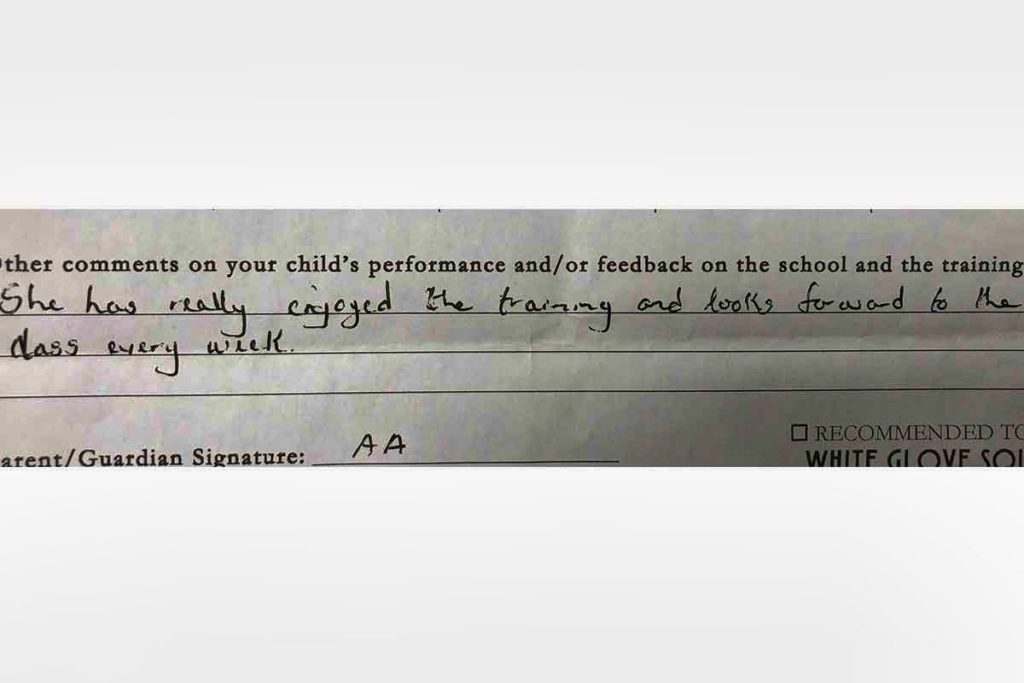 ther comments on your child's performance and/or feedback on the school and the training
She has really enjoyed the training and looks forward to the
class every week.
arent/Guardian Signature: AA
☐ RECOMMENDED TO
WHITE GLOVE SOL